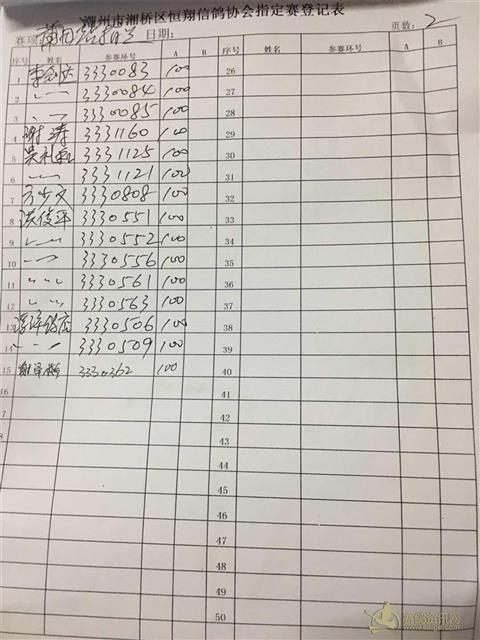 潮州市湘桥区恒翔信鸽协会指定赛登记表
赛项: 日期: 页数: 2
序号 姓名 参赛环号 A B 序号 姓名 参赛环号 A B
1 3330083 100 26
2 3330084 100 27
3 3330085 100 28
4 谢涛 3331160 100 29
5 吴礼和 3331125 100 30
6 3331121 100 31
7 方少文 3330808 100 32
8 洪俊平 3330551 100 33
9 3330552 100 34
10 3330556 100 35
11 3330561 100 36
12 3330563 100 37
13 3330506 100 38
14 3330509 100 39
15 3330362 100 40
16 41
42
43
44
45
46
47
48
49
50
赛鸽资讯网